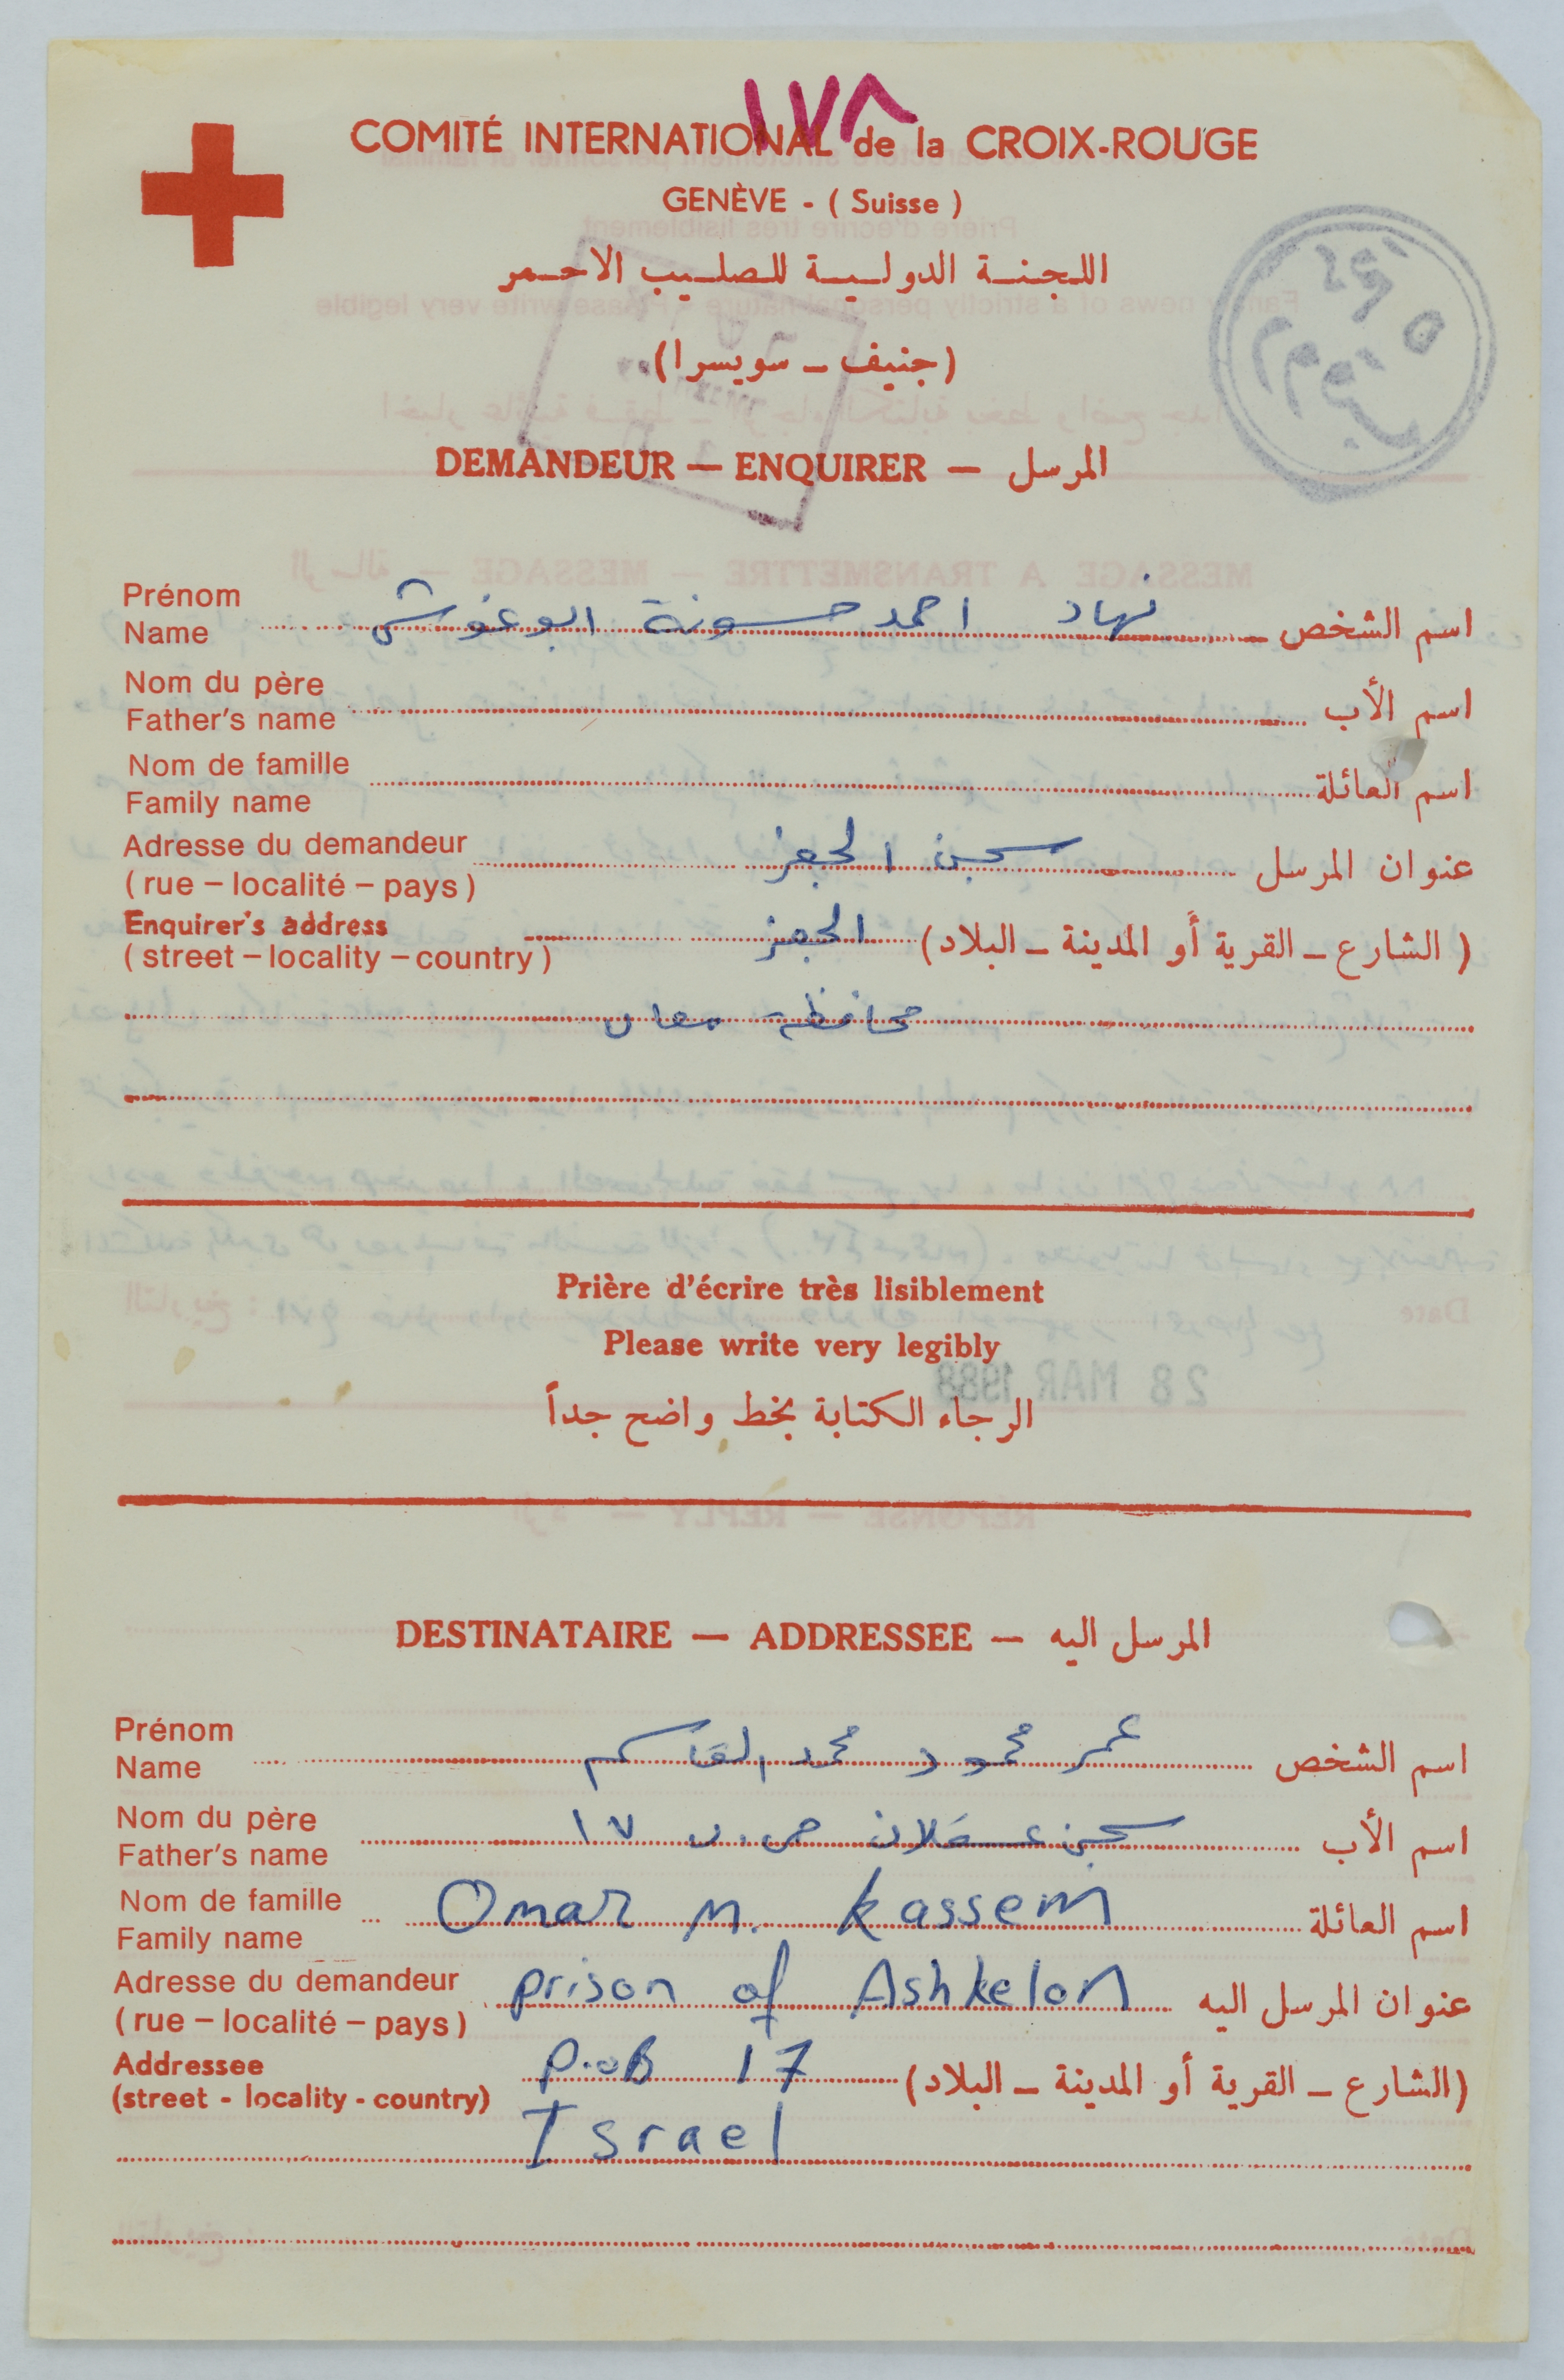 ١٧٨
COMITÉ INTERNATIONAL de la CROIX-ROUGE
GENÈVE - ( Suisse )
اللجنة الدولية للصليب الاحمر
(جنيف – سويسرا)
DEMANDEUR — ENQUIRER — المرسل
Prénom
Name
اسم الشخص
نهاد احمد حسونة ابو غوش
Nom du père
Father's name
اسم الأب
Nom de famille
Family name
اسم العائلة
Adresse du demandeur
( rue – localité – pays )
عنوان المرسل
سجن الجفر
Enquirer's address
( street – locality – country )
( الشارع – القرية أو المدينة – البلاد)
الجفر
محافظة معان
Prière d'écrire très lisiblement
Please write very legibly
الرجاء الكتابة بخط واضح جداً
28 MAR 1988
DESTINATAIRE — ADDRESSEE — المرسل اليه
Prénom
Name
اسم الشخص
عمر محمود محمد القاسم
Nom du père
Father's name
اسم الأب
سجن عسقلان ص.ب ١٧
Nom de famille
Family name
اسم العائلة
Omar M. Kassem
Adresse du demandeur
( rue – localité – pays )
عنوان المرسل اليه
prison of Ashkelon
Addressee
(street - locality - country)
(الشارع – القرية أو المدينة – البلاد)
P.oB 17
Israel